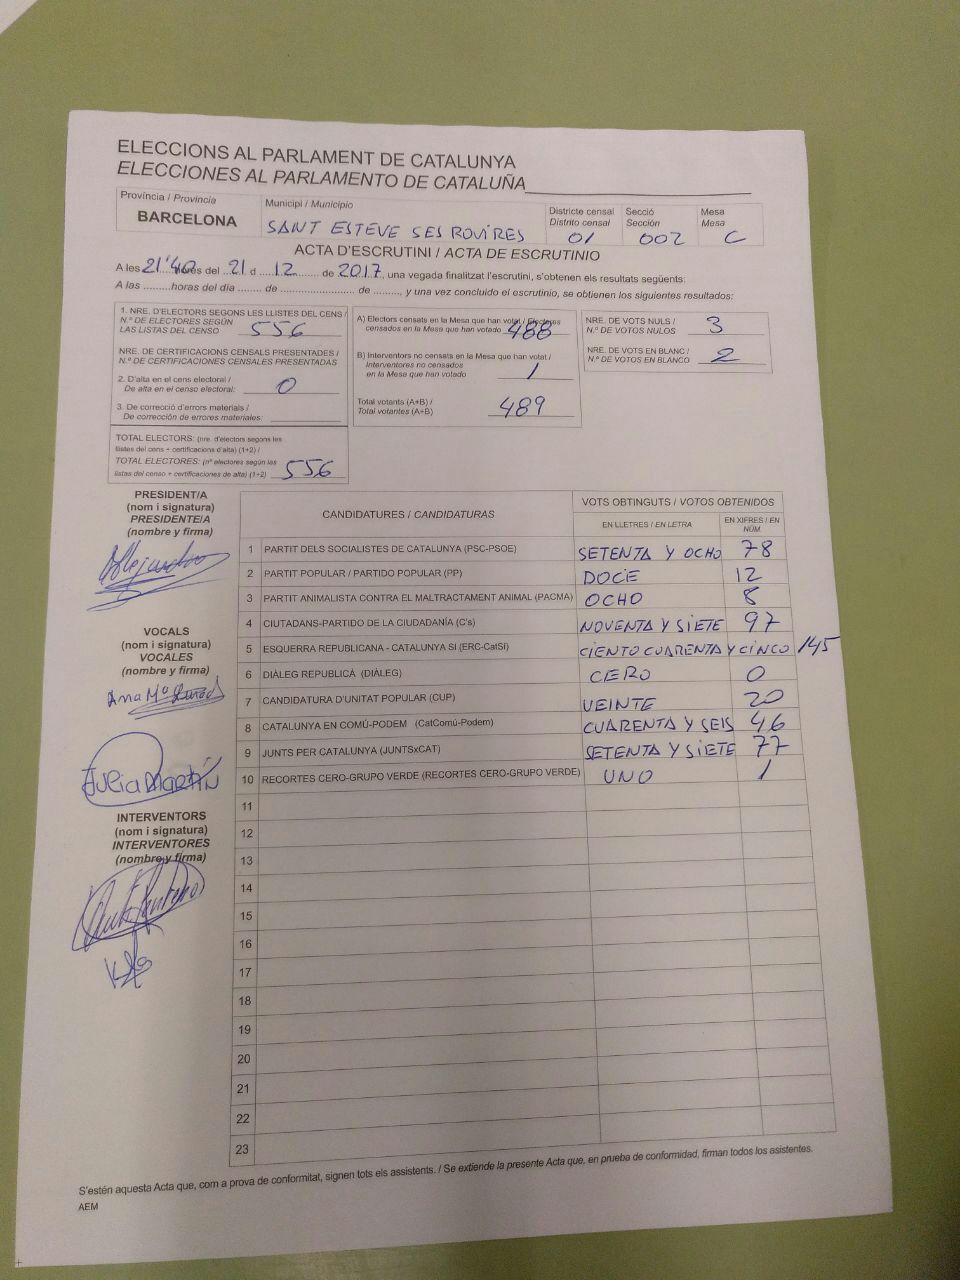 ELECCIONS AL PARLAMENT DE CATALUNYA
ELECCIONES AL PARLAMENTO DE CATALUÑA
Província / Provincia
BARCELONA
Municipi / Municipio
SANT ESTEVE SES ROVIRES
Districte censal
Distrito censal
01
Secció
Sección
002
Mesa
Mesa
C
ACTA D'ESCRUTINI / ACTA DE ESCRUTINIO
A les 21'40 hores del 21 d 12 de 2017, una vegada finalitzat l'escrutini, s'obtenen els resultats següents:
A las .........horas del día ........ de ........................ de ........., y una vez concluido el escrutinio, se obtienen los siguientes resultados:
1. NRE. D'ELECTORS SEGONS LES LLISTES DEL CENS /
N.º DE ELECTORES SEGÚN
LAS LISTAS DEL CENSO 556
NRE. DE CERTIFICACIONS CENSALS PRESENTADES /
N.º DE CERTIFICACIONES CENSALES PRESENTADAS
2. D'alta en el cens electoral /
De alta en el censo electoral: 0
3. De correcció d'errors materials /
De corrección de errores materiales:
TOTAL ELECTORS: (nre. d'electors segons les
llistes del cens + certificacions d'alta) (1+2) /
TOTAL ELECTORES: (nº electores según las
listas del censo + certificaciones de alta) (1+2) 556
A) Electors censats en la Mesa que han votat / Electores
censados en la Mesa que han votado 488
B) Interventors no censats en la Mesa que han votat /
Interventores no censados
en la Mesa que han votado 1
Total votants (A+B) /
Total votantes (A+B) 489
NRE. DE VOTS NULS /
N.º DE VOTOS NULOS 3
NRE. DE VOTS EN BLANC /
N.º DE VOTOS EN BLANCO 2
PRESIDENT/A
(nom i signatura)
PRESIDENTE/A
(nombre y firma)
Alejandro
VOCALS
(nom i signatura)
VOCALES
(nombre y firma)
Ana Mª
Julia Martín
INTERVENTORS
(nom i signatura)
INTERVENTORES
(nombre y firma)
CANDIDATURES / CANDIDATURAS
VOTS OBTINGUTS / VOTOS OBTENIDOS
EN LLETRES / EN LETRA
EN XIFRES / EN NÚM.
1 PARTIT DELS SOCIALISTES DE CATALUNYA (PSC-PSOE) SETENTA Y OCHO 78
2 PARTIT POPULAR / PARTIDO POPULAR (PP) DOCE 12
3 PARTIT ANIMALISTA CONTRA EL MALTRACTAMENT ANIMAL (PACMA) OCHO 8
4 CIUTADANS-PARTIDO DE LA CIUDADANÍA (C's) NOVENTA Y SIETE 97
5 ESQUERRA REPUBLICANA - CATALUNYA SÍ (ERC-CatSí) CIENTO CUARENTA Y CINCO 145
6 DIÀLEG REPUBLICÀ (DIÀLEG) CERO 0
7 CANDIDATURA D'UNITAT POPULAR (CUP) VEINTE 20
8 CATALUNYA EN COMÚ-PODEM (CatComú-Podem) CUARENTA Y SEIS 46
9 JUNTS PER CATALUNYA (JUNTSxCAT) SETENTA Y SIETE 77
10 RECORTES CERO-GRUPO VERDE (RECORTES CERO-GRUPO VERDE) UNO 1
11
12
13
14
15
16
17
18
19
20
21
22
23
S'estén aquesta Acta que, com a prova de conformitat, signen tots els assistents. / Se extiende la presente Acta que, en prueba de conformidad, firman todos los asistentes.
AEM